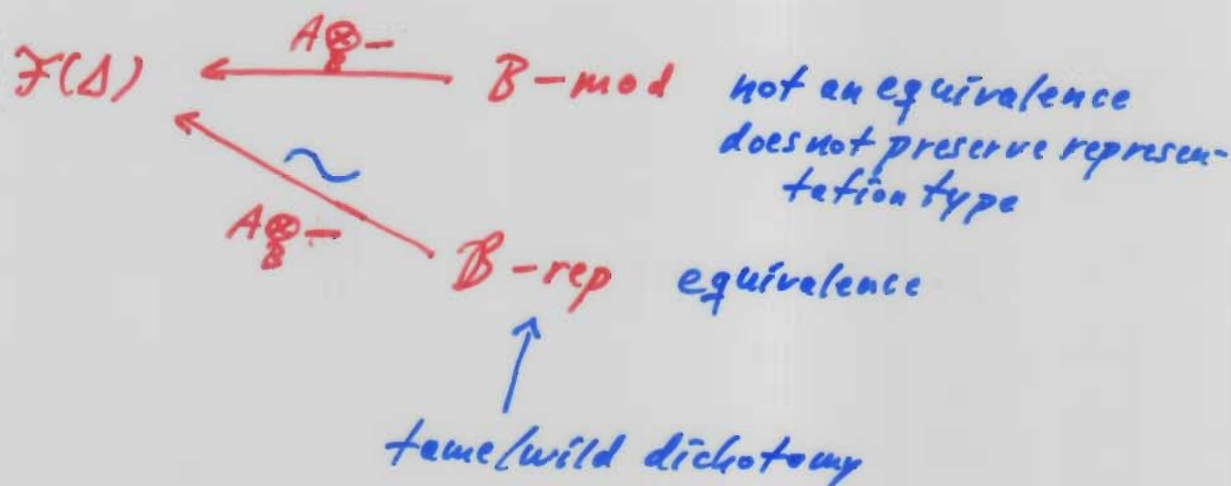 A⊗−
B
𝓕(Δ) ← B−mod not an equivalence
does not preserve represen-
tation type
∼
A⊗−
B
𝔹−rep equivalence
↑
tame/wild dichotomy